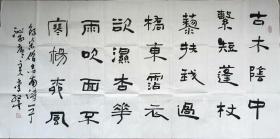 古木陰中
繫短蓬杖
藜扶我過
橋東霑衣
欲濕杏花
雨吹面不
寒楊柳風
錄宋僧志南詩一首